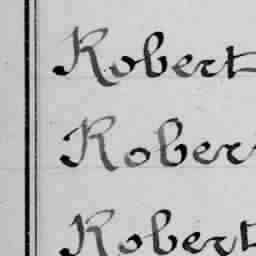 Robert
Rober
Robert